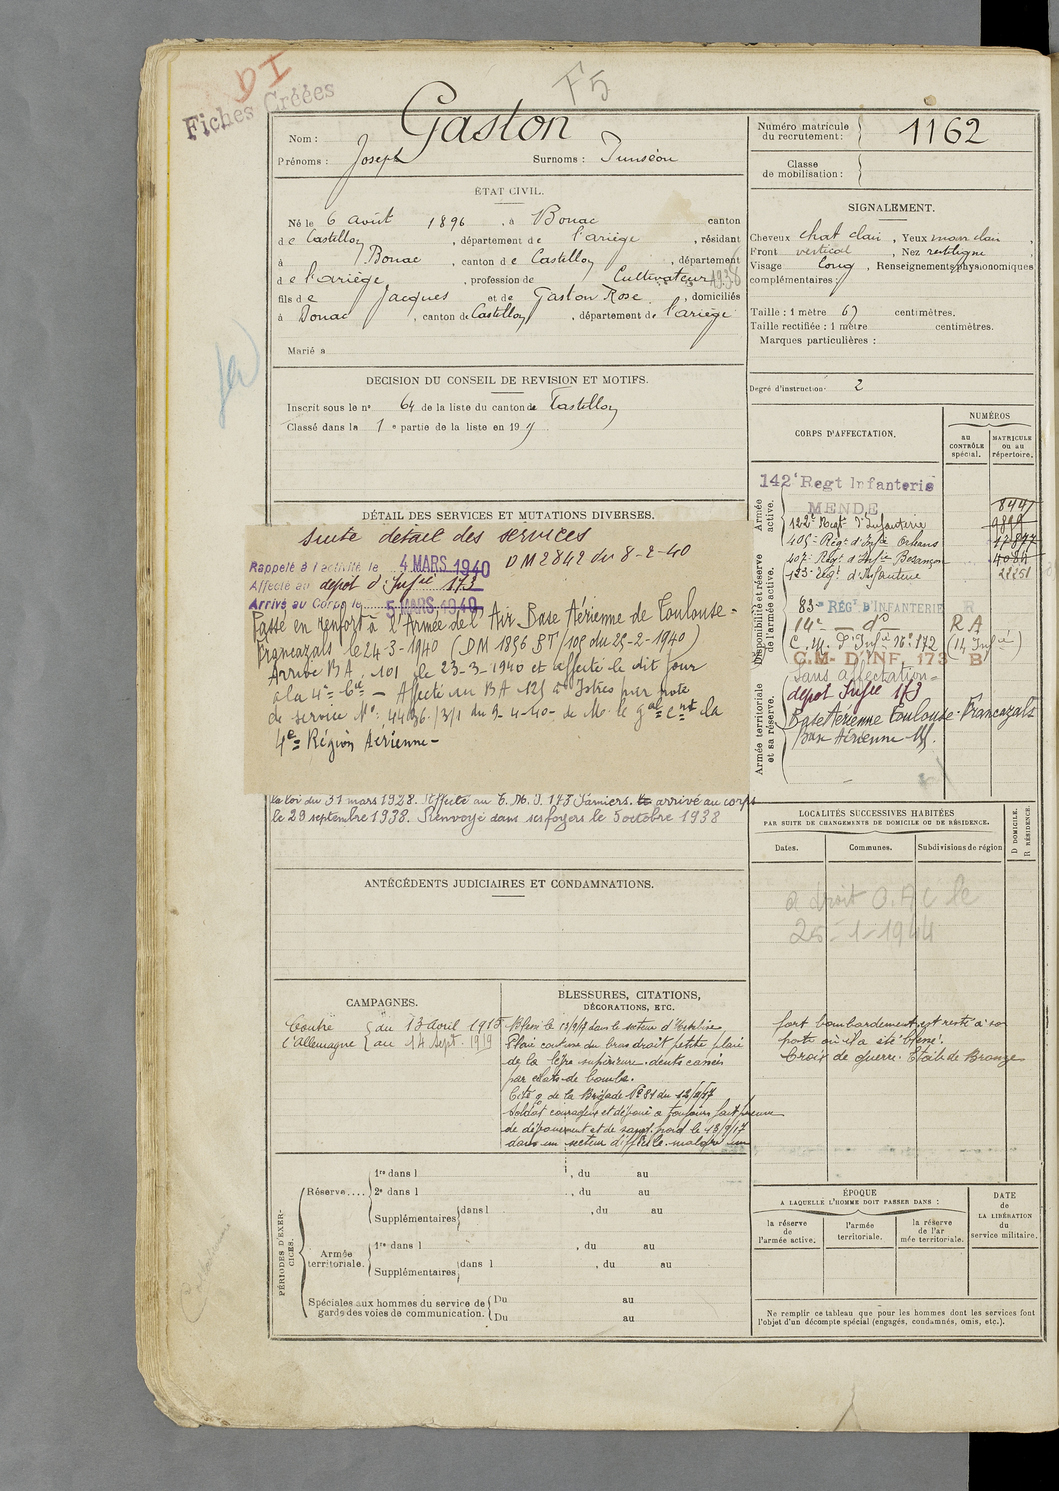 DI
Fiches Créées
F5
Nom : Gaston
Prénoms : Joseph Surnoms :
Numéro matricule du recrutement : 1162
Classe de mobilisation :
ÉTAT CIVIL.
Né le 6 août 1896, à Bonac canton
de Castillon, département de l'ariège, résidant
à Bonac, canton de Castillon, département
de l'ariège, profession de Cultivateur 1938
fils de Jacques et de Gaston Rose, domiciliés
à Bonac, canton de Castillon, département de l'ariège
Marié à
SIGNALEMENT.
Cheveux chat clair, Yeux marr clair,
Front vertical, Nez rectiligne,
Visage long, Renseignements physionomiques
complémentaires :
Taille : 1 mètre 67 centimètres.
Taille rectifiée : 1 mètre centimètres.
Marques particulières :
Degré d'instruction : 2
DECISION DU CONSEIL DE REVISION ET MOTIFS.
Inscrit sous le n° 64 de la liste du canton de Castillon
Classé dans la 1e partie de la liste en 19
CORPS D'AFFECTATION.
NUMÉROS
au CONTRÔLE spécial.
MATRICULE ou au répertoire.
Armée active.
Disponibilité et réserve de l'armée active.
Armée territoriale et sa réserve.
142e Regt Infanterie
MENDE
122e Regt d'Infanterie
405e Régt d'Infie Orléans
407e Régt d'Infie Besançon
123e Régt d'Infanterie 22251
83me RÉGt D'INFANTERIE R
14e — do — RA
C.M. d'Infie No 172
C.M. D'INF. 173 B
Sans affectation
depot Infie 173
Base Aérienne Toulouse-Francazals
Base Aérienne
DÉTAIL DES SERVICES ET MUTATIONS DIVERSES.
Suite détail des services
Rappelé à l'activité le 4 MARS 1940 DM 2842 du 8-2-40
Affecté au depot d'Infie 173
Arrivé au Corps le 5 MARS 1940
Passé en renfort à l'Armée de l'Air Base Aérienne de Toulouse-
Francazals le 24-3-1940 (DM 1896 BT/108 du 25-2-1940)
Arrivé BA. 101 le 23-3-1940 et affecté le dit jour
à la 4e Cie — Affecté au BA 125 à Istres par note
de service No 4436/3/1 du 9-4-40- de M. le Gal Cnt la
4e Région Aérienne-
la loi du 31 mars 1928. Affecté au C.M.I. 173 Pamiers. arrivé au corps
le 29 septembre 1938. Renvoyé dans ses foyers le 5 octobre 1938
ANTÉCÉDENTS JUDICIAIRES ET CONDAMNATIONS.
LOCALITÉS SUCCESSIVES HABITÉES
PAR SUITE DE CHANGEMENTS DE DOMICILE OU DE RÉSIDENCE.
Dates.
Communes.
Subdivisions de région
D DOMICILE.
R RÉSIDENCE.
a droit O.A C le
25-1-1944
CAMPAGNES.
Contre l'Allemagne
du 13 avril 1915
au 14 Sept. 1919
BLESSURES, CITATIONS,
DÉCORATIONS, ETC.
Blessé le 13/9/17 dans le secteur d'
Plaie contuse du bras droit petite plaie
de la lèvre supérieure. dents cassées
par éclats de bombe.
Cité o. de la Brigade No 81 du 12/10/17
Soldat courageux et dévoué a toujours fait preuve
de dévouement et de sang-froid le 13/9/17
dans un secteur difficile malgré un
fort bombardement est resté à son
poste où il a été blessé.
Croix de guerre. Etoile de Bronze
PÉRIODES D'EXERCICES.
Réserve....
1re dans l , du au
2e dans l , du au
Supplémentaires dans l , du au
Armée territoriale.
1re dans l , du au
Supplémentaires dans l , du au
Spéciales aux hommes du service de garde des voies de communication.
Du au
Du au
ÉPOQUE
A LAQUELLE L'HOMME DOIT PASSER DANS :
la réserve de l'armée active.
l'armée territoriale.
la réserve de l'armée territoriale.
DATE de LA LIBÉRATION du service militaire.
Ne remplir ce tableau que pour les hommes dont les services font
l'objet d'un décompte spécial (engagés, condamnés, omis, etc.).